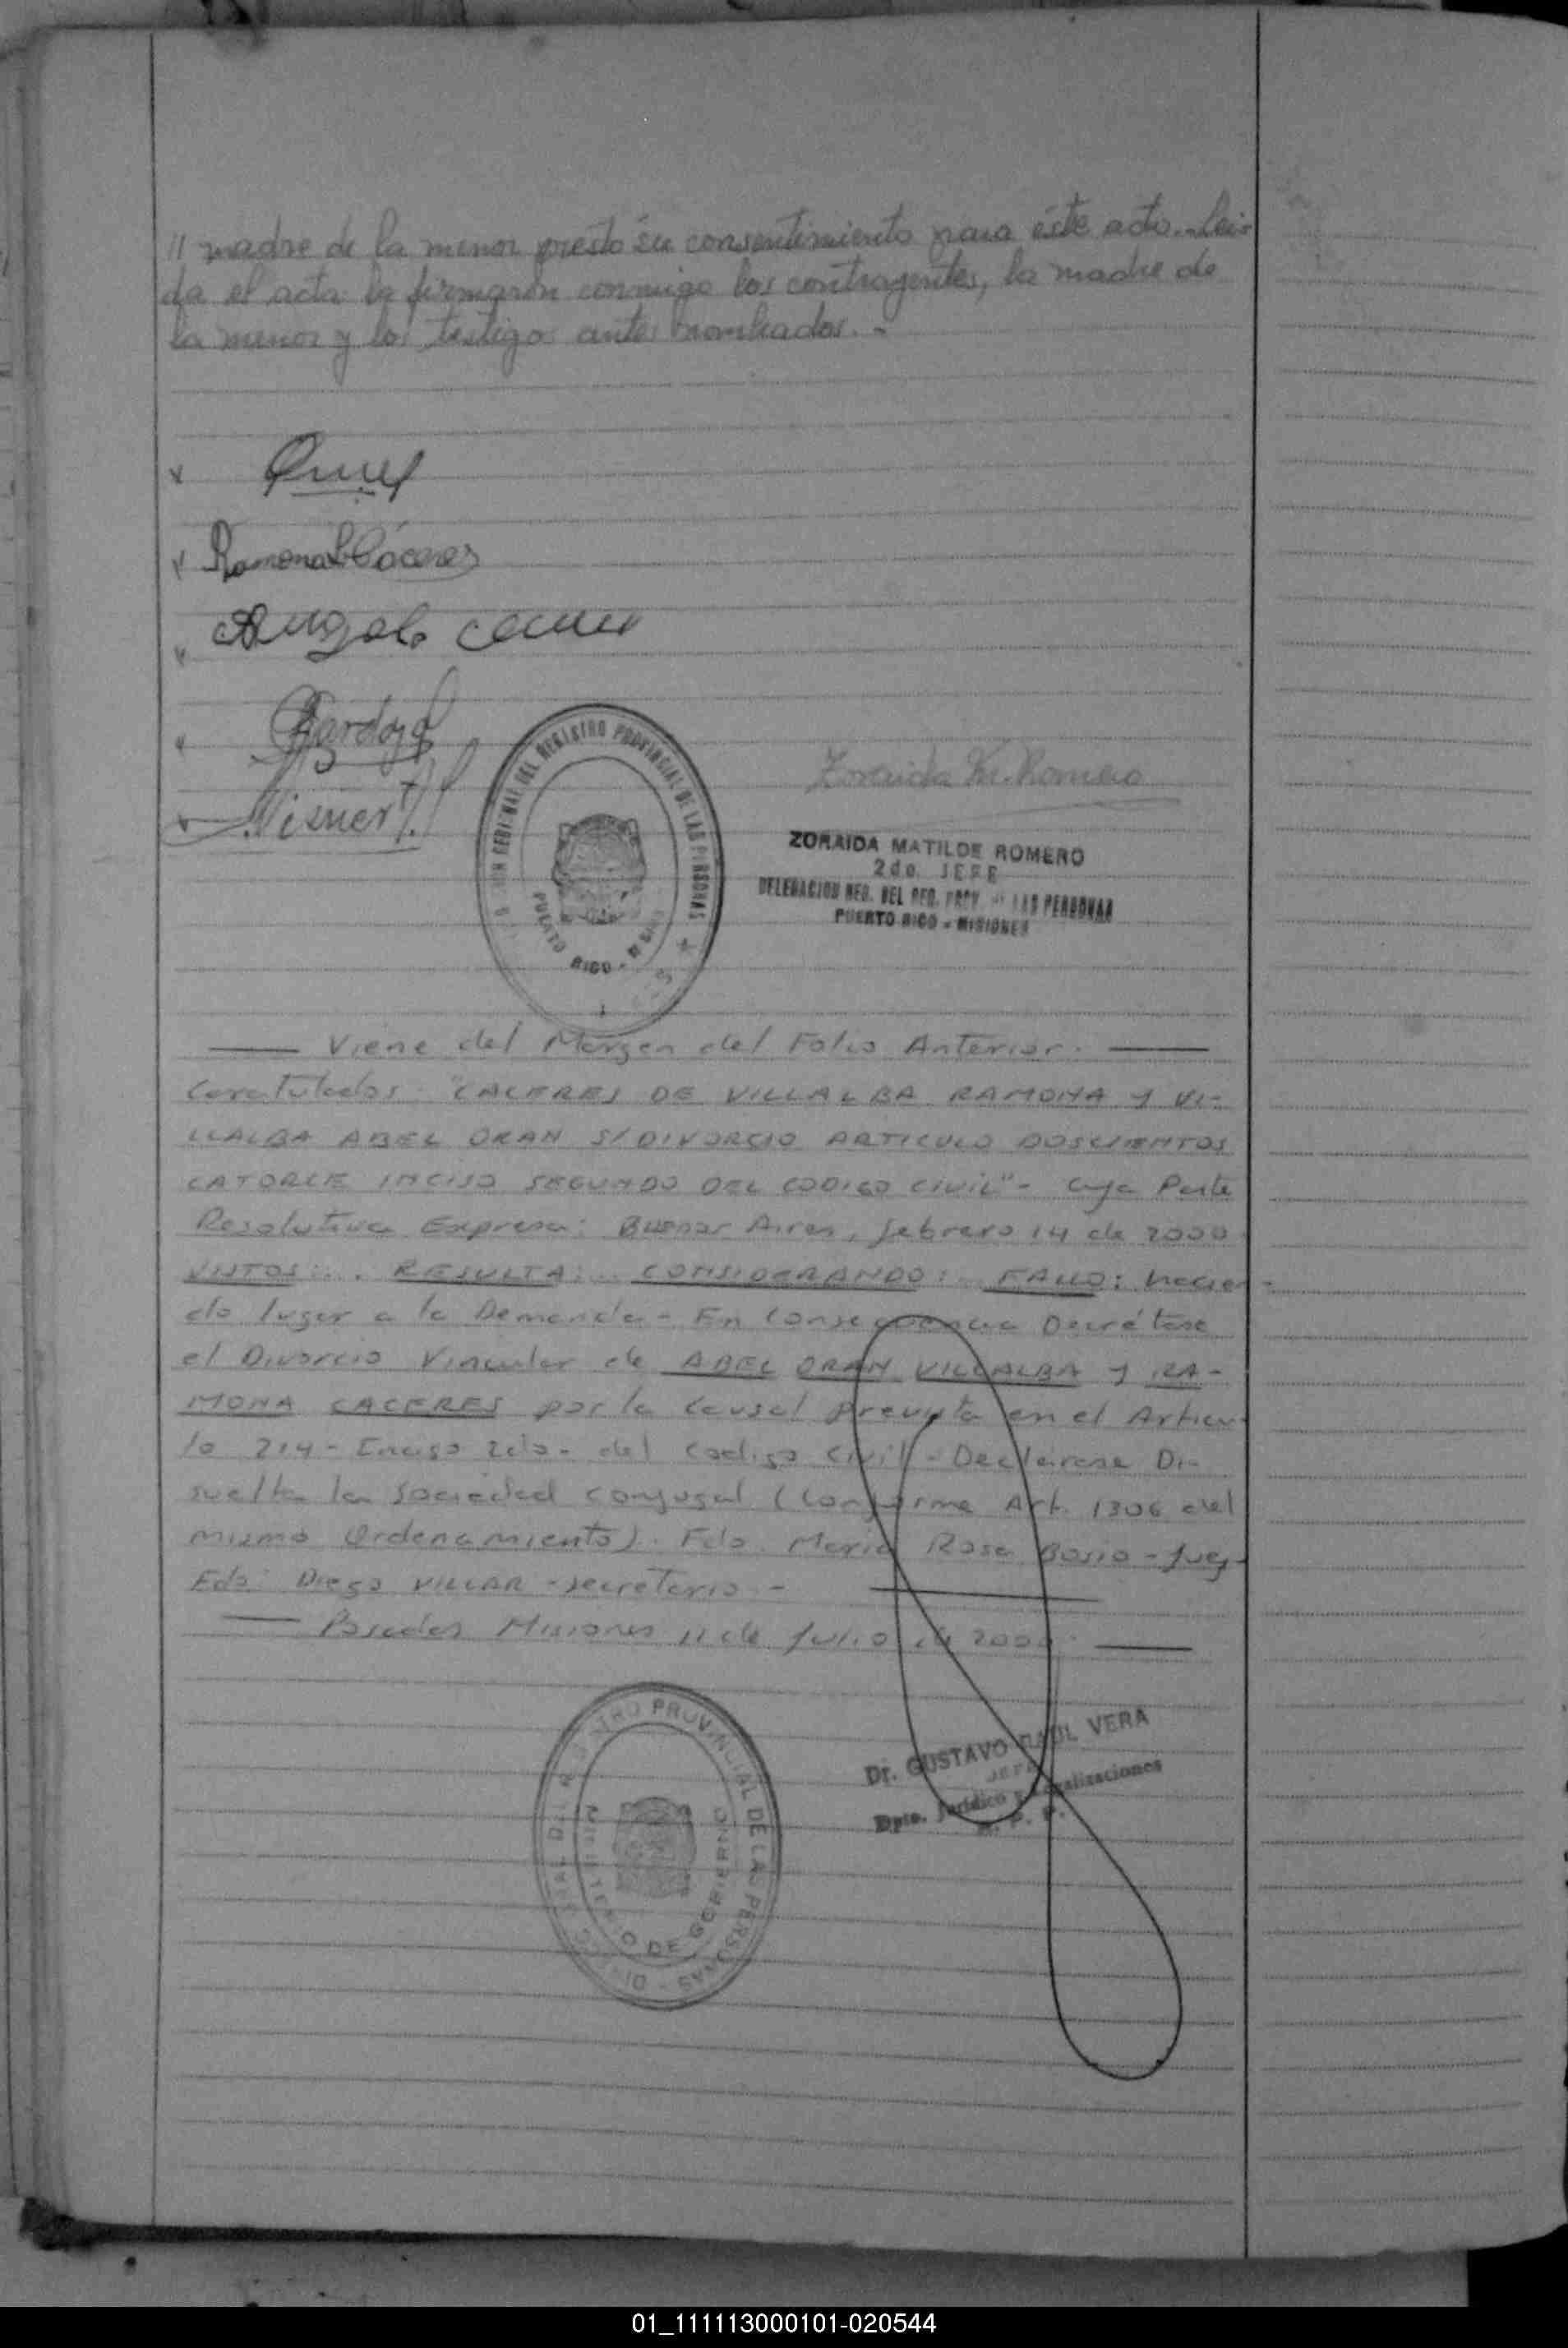 // madre de la menor prestó su consentimiento para éste acto.- Leí-
da el acta la firmaron conmigo los contrayentes, la madre de
la menor y los testigos antes nombrados.-
Ramona Cáceres
Angela
Zoraida M. Romero
ZORAIDA MATILDE ROMERO
2do. JEFE
DELEGACION REG. DEL REG. PROV. DE LAS PERSONAS
PUERTO RICO - MISIONES
GENERAL DEL REGISTRO PROVINCIAL DE LAS PERSONAS
PUERTO RICO -
Viene del Margen del Folio Anterior.
Caratulados: "CACERES DE VILLALBA RAMONA Y VI-
LLALBA ABEL ORAN S/DIVORCIO ARTICULO DOSCIENTOS
CATORCE INCISO SEGUNDO DEL CODIGO CIVIL"- cuya Parte
Resolutiva Expresa: Buenos Aires, febrero 14 de 2000
VISTOS:.. RESULTA:.. CONSIDERANDO:.. FALLO: hacien-
do lugar a la Demanda - En Consecuencia Decrétase
el Divorcio Vincular de ABEL ORAN VILLALBA Y RA-
MONA CACERES por la causal prevista en el Articu-
lo 214 - Inciso 2do - del Codigo Civil - Declárase Di-
suelta la Sociedad conyugal (Conforme Art. 1306 del
mismo Ordenamiento). Fdo. Maria Rosa Bosio - Juez -
Fdo: Diego VILLAR - Secretario. -
Posadas Misiones 11 de Julio de
Dr. GUSTAVO RAUL VERA
JEFE
Dpto. Jurídico y Legalizaciones
R. P. P.
REGISTRO PROVINCIAL DE LAS PERSONAS
MINISTERIO DE GOBIERNO
01_111113000101-020544